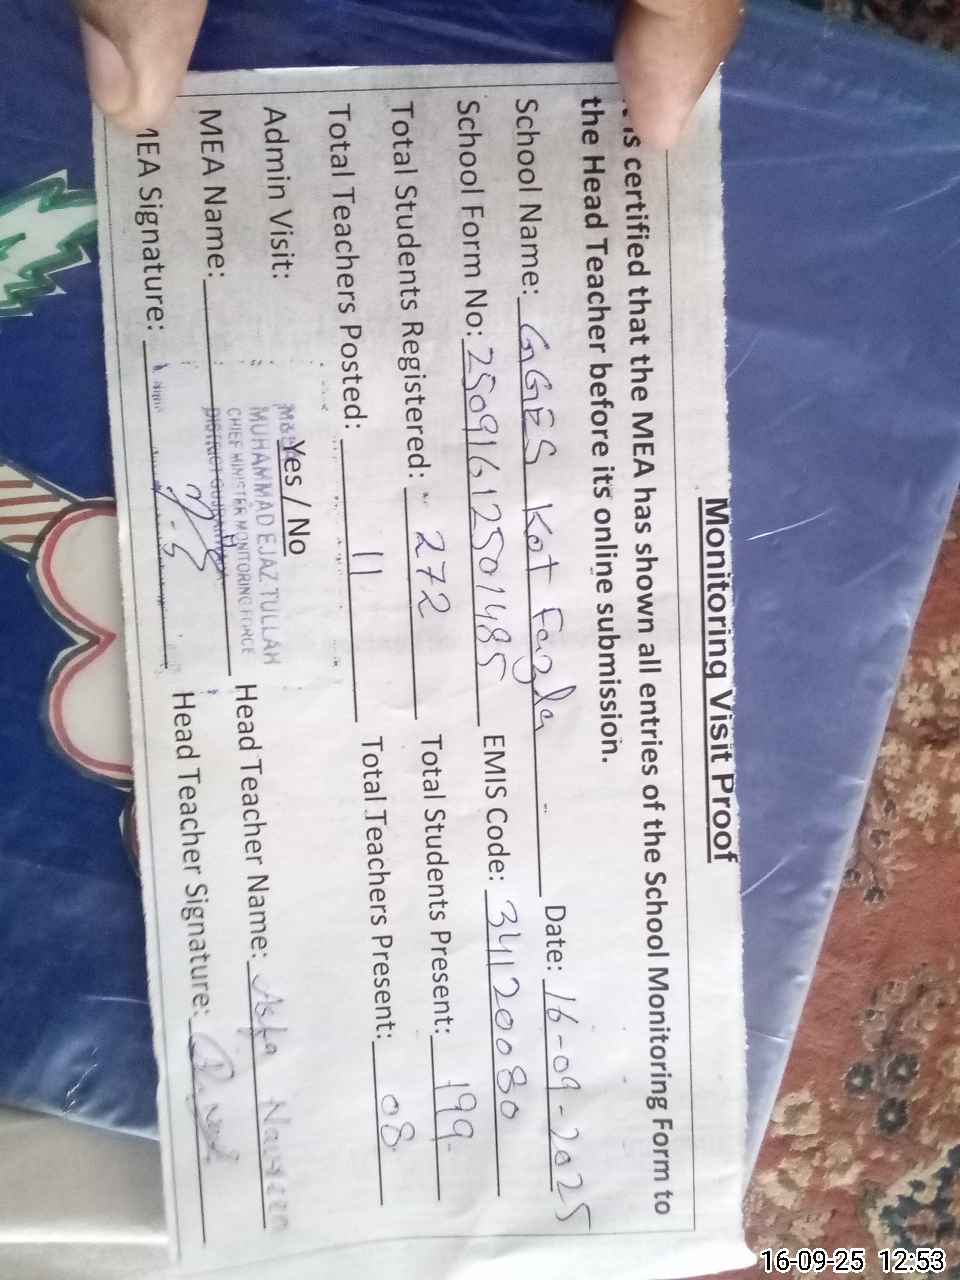 Monitoring Visit Proof
is certified that the MEA has shown all entries of the School Monitoring Form to
the Head Teacher before its online submission.
School Name: GGES Kot Fazla Date: 16-09-2025
School Form No: 25091612501485 EMIS Code: 34120080
Total Students Registered: 272 Total Students Present: 199
Total Teachers Posted: 11 Total Teachers Present: 08
Admin Visit: Yes / No
MUHAMMAD EJAZ TULLAH
CHIEF MINISTER MONITORING FORCE
MEA Name: Head Teacher Name: Asfa Nasreen
MEA Signature: Head Teacher Signature:
16-09-25 12:53